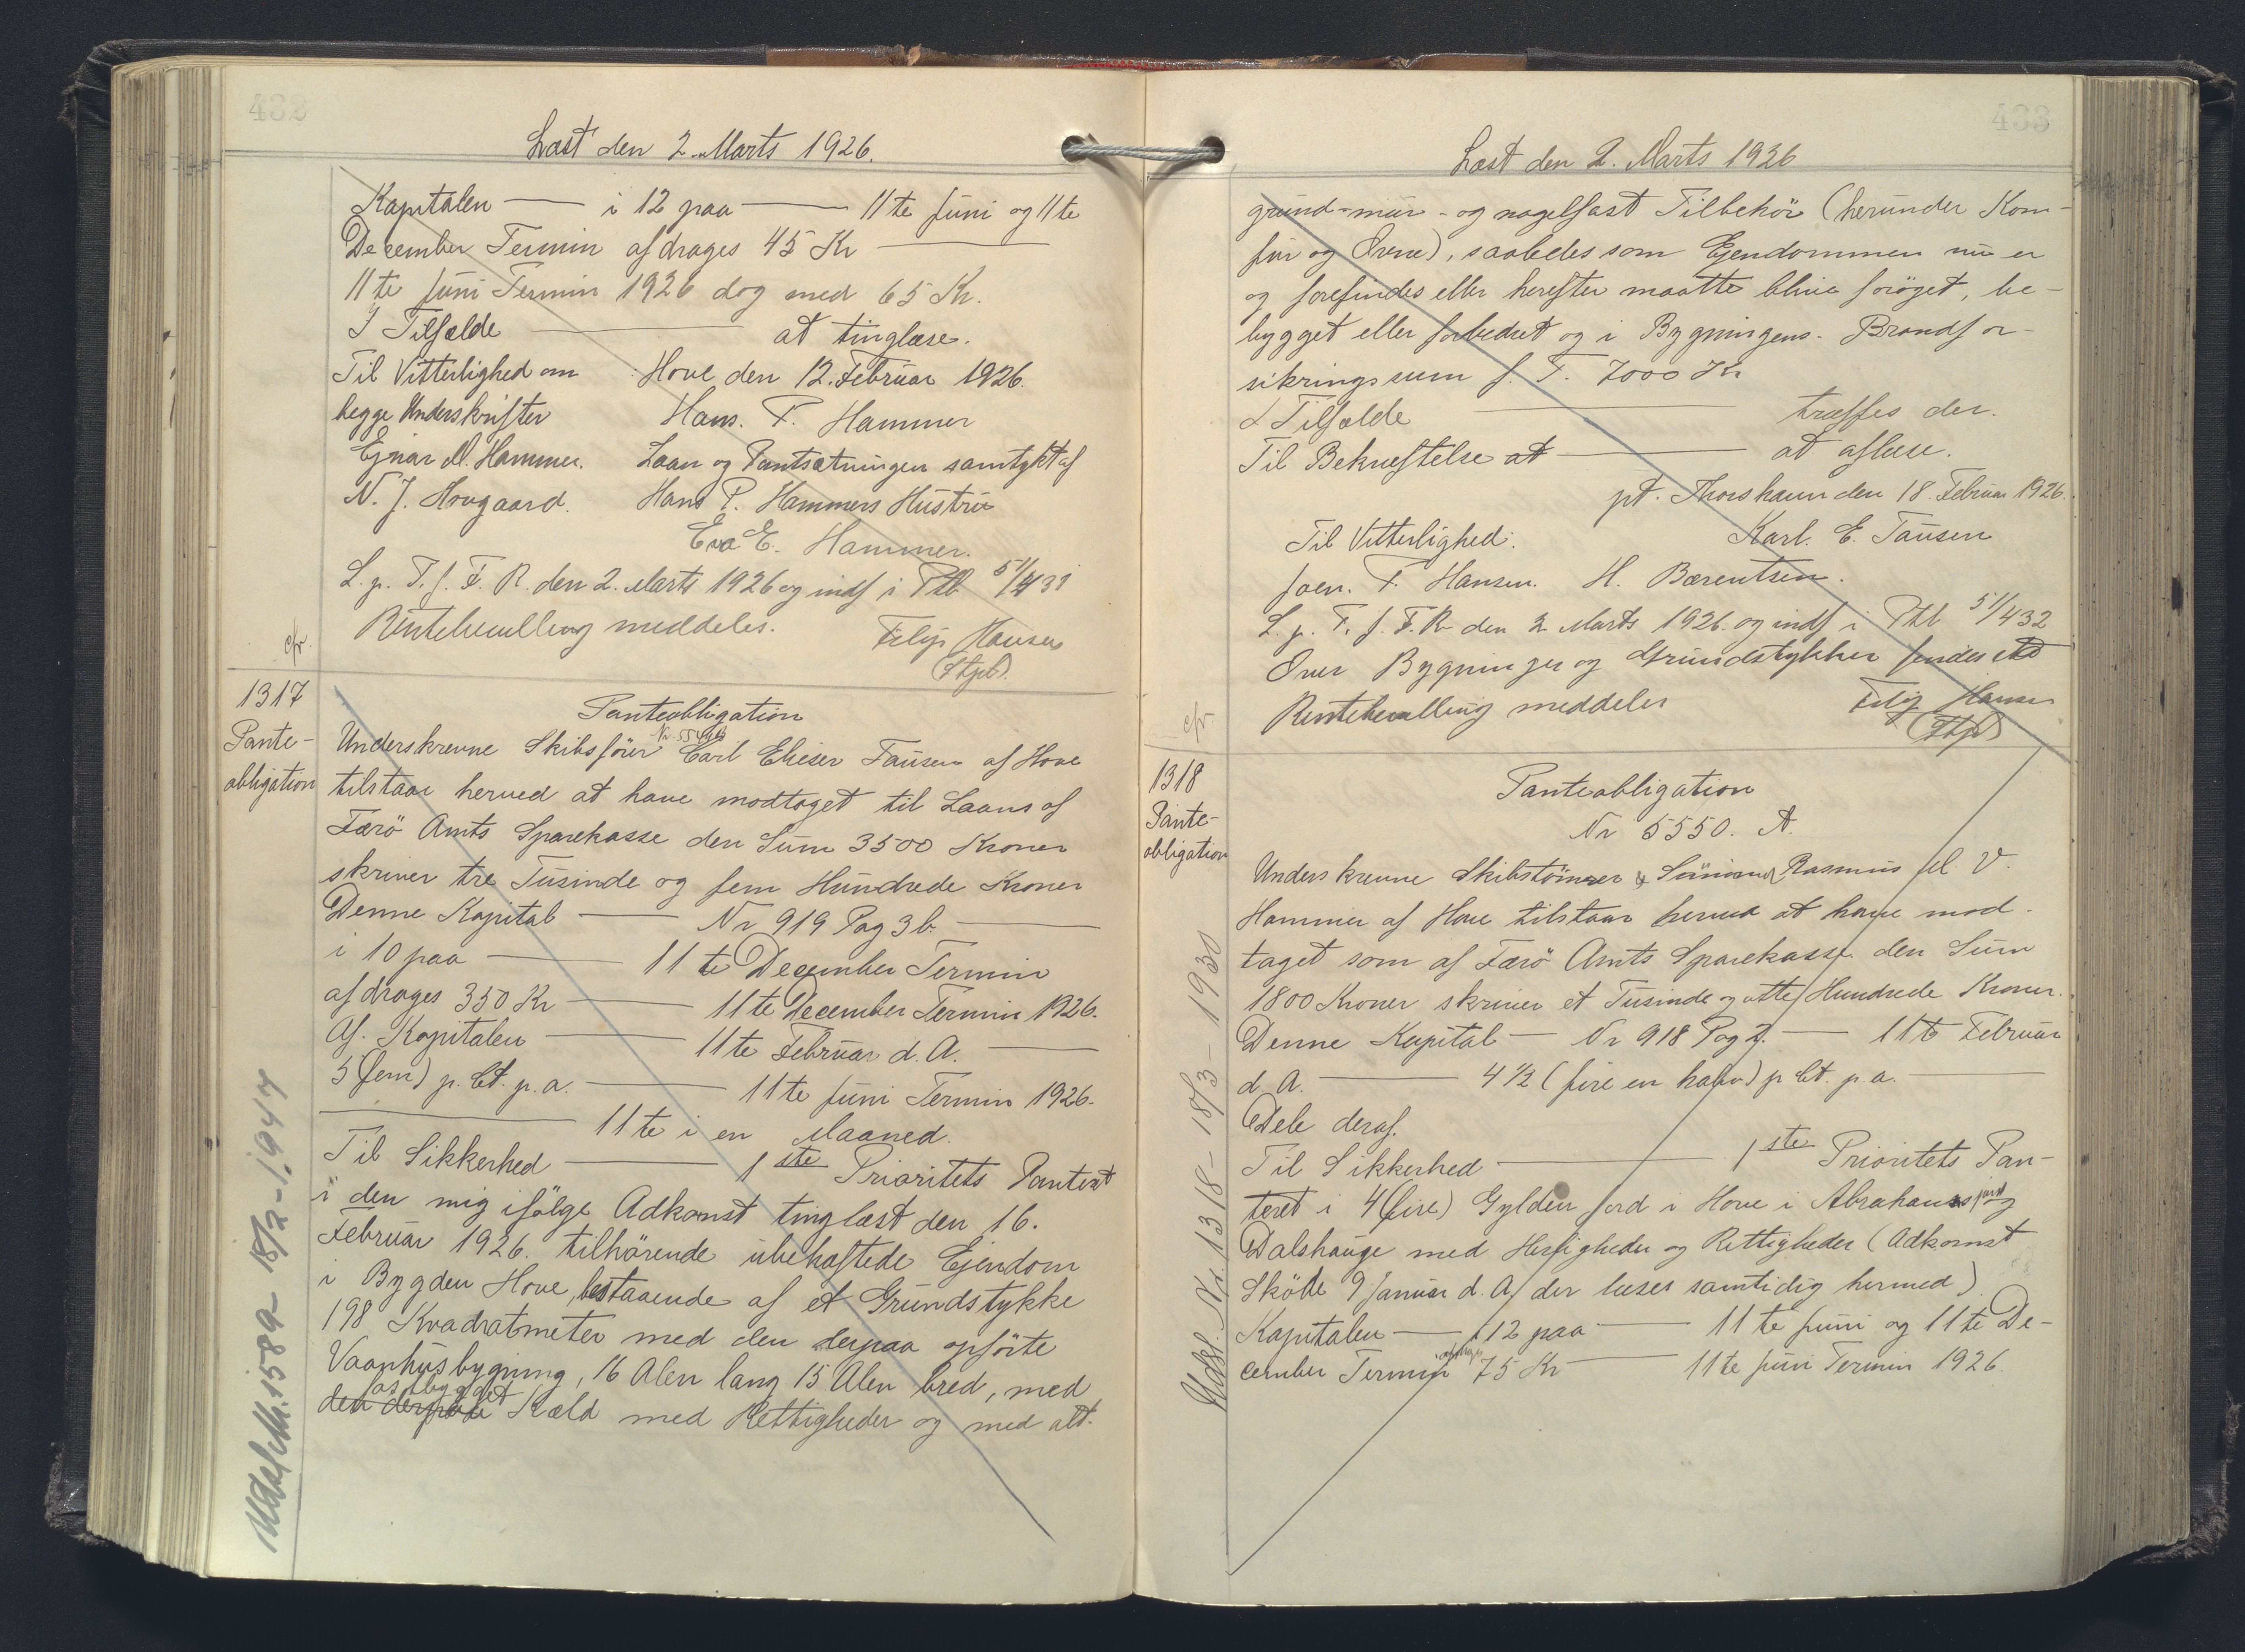 432
Læst den 2. Marts 1926.
Kapitalen — i 12 paa — 11te Juni og 11te
December Termin afdrages 45 Kr —
11te Juni Termin 1926 dog med 65 Kr.
I Tilfælde — at tinglæse.
Til Vitterlighed om Hove den 12. Februar 1926.
begge Underskrifter Hans. P. Hammer
Ejnar M. Hammer. Laan og Pantsætningen samtykt af
N. J. Hovgaard. Hans P. Hammers Hustru
Eva E. Hammer.
L. p. T. f. F. R. den 2. Marts 1926 og indf i Ptb 51/431
Rentebevilling meddeles. Filip Hansen
cfr. (Ftgd).
1317
Pante-
obligation
Panteobligation
Underskrevne Skibsförer Carl Elieser Tausen af Hove
tilstaar herved at have modtaget til Laans af
Færö Amts Sparekasse den Sum 3500 Kroner
skriver tre Tusinde og fem Hundrede Kroner
Denne Kapital — Nr 919 Pag 3 b. —
i 10 paa — 11te December Termin
afdrages 350 Kr — 11te December Termin 1926.
Af. Kapitalen — 11te Februar d. A. —
5 (fem) p. Ct. p. a. — 11te Juni Termin 1926.
— 11te i en Maaned.
Til Sikkerhed — 1ste Prioritets Panteret
i den mig ifölge Adkomst tinglæst den 16.
Februar 1926. tilhörende ubehæftede Ejendom
i Bygden Hove, bestaaende af et Grundstykke
198 Kvadratmeter med den derpaa opförte
Vaanhusbygning, 16 Alen lang 15 Alen bred, med
den derpaa Kæld med Rettigheder og med alt
Udsl. Nr. 1589 - 18/2 - 1947
433
Læst den 2. Marts 1926
grund- mur- og nagelfast Tilbehör (herunder Kom-
fur og Ovne), saaledes som Ejendommen nu er
og forefindes eller herefter maatte blive foröget, be-
bygget eller forbedret og i Bygningens. Brandfor-
sikringssum f. T. 7000 Kr
I Tilfælde — træffes der.
Til Bekræftelse at — at aflæse.
pt. Thorshavn den 18. Februar 1926.
Til Vitterlighed: Karl. E. Tausen
Joen. P. Hansen. H. Bærentsen.
L. p. T. f. F. R den 2 Marts 1926. og indf i Ptb 51/432
Over Bygninger og Grundstykker findes
Rentebevilling meddeles Filip Hansen
cfr. (Ftgd)
1318
Pante-
obligation
Panteobligation
Nr 5550. A.
Underskrevne Skibstömrer & Rasmus M. V.
Hammer af Hove tilstaar herved at have mod-
taget som af Færö Amts Sparekasse den Sum
1800 Kroner skriver et Tusinde og otte Hundrede Kroner.
Denne Kapital — Nr 918 Pag 2. — 11te Februar
d. A. — 4 1/2 (fire en halv) p Ct. p. a. —
Dele deraf.
Til Sikkerhed — 1ste Prioritets Pan-
teret i 4 (fire) Gylden Jord i Hove i Abrahamsjord og
Dalshauge med Herligheder og Rettigheder (Adkomst
Sköde 9 Januar d. A. der læses samtidig hermed)
Kapitalen — i 12 paa — 11te Juni og 11te De-
cember Termin 75 Kr — 11te Juni Termin 1926.
Udsl. Nr. 1318 - 18/3 - 1930